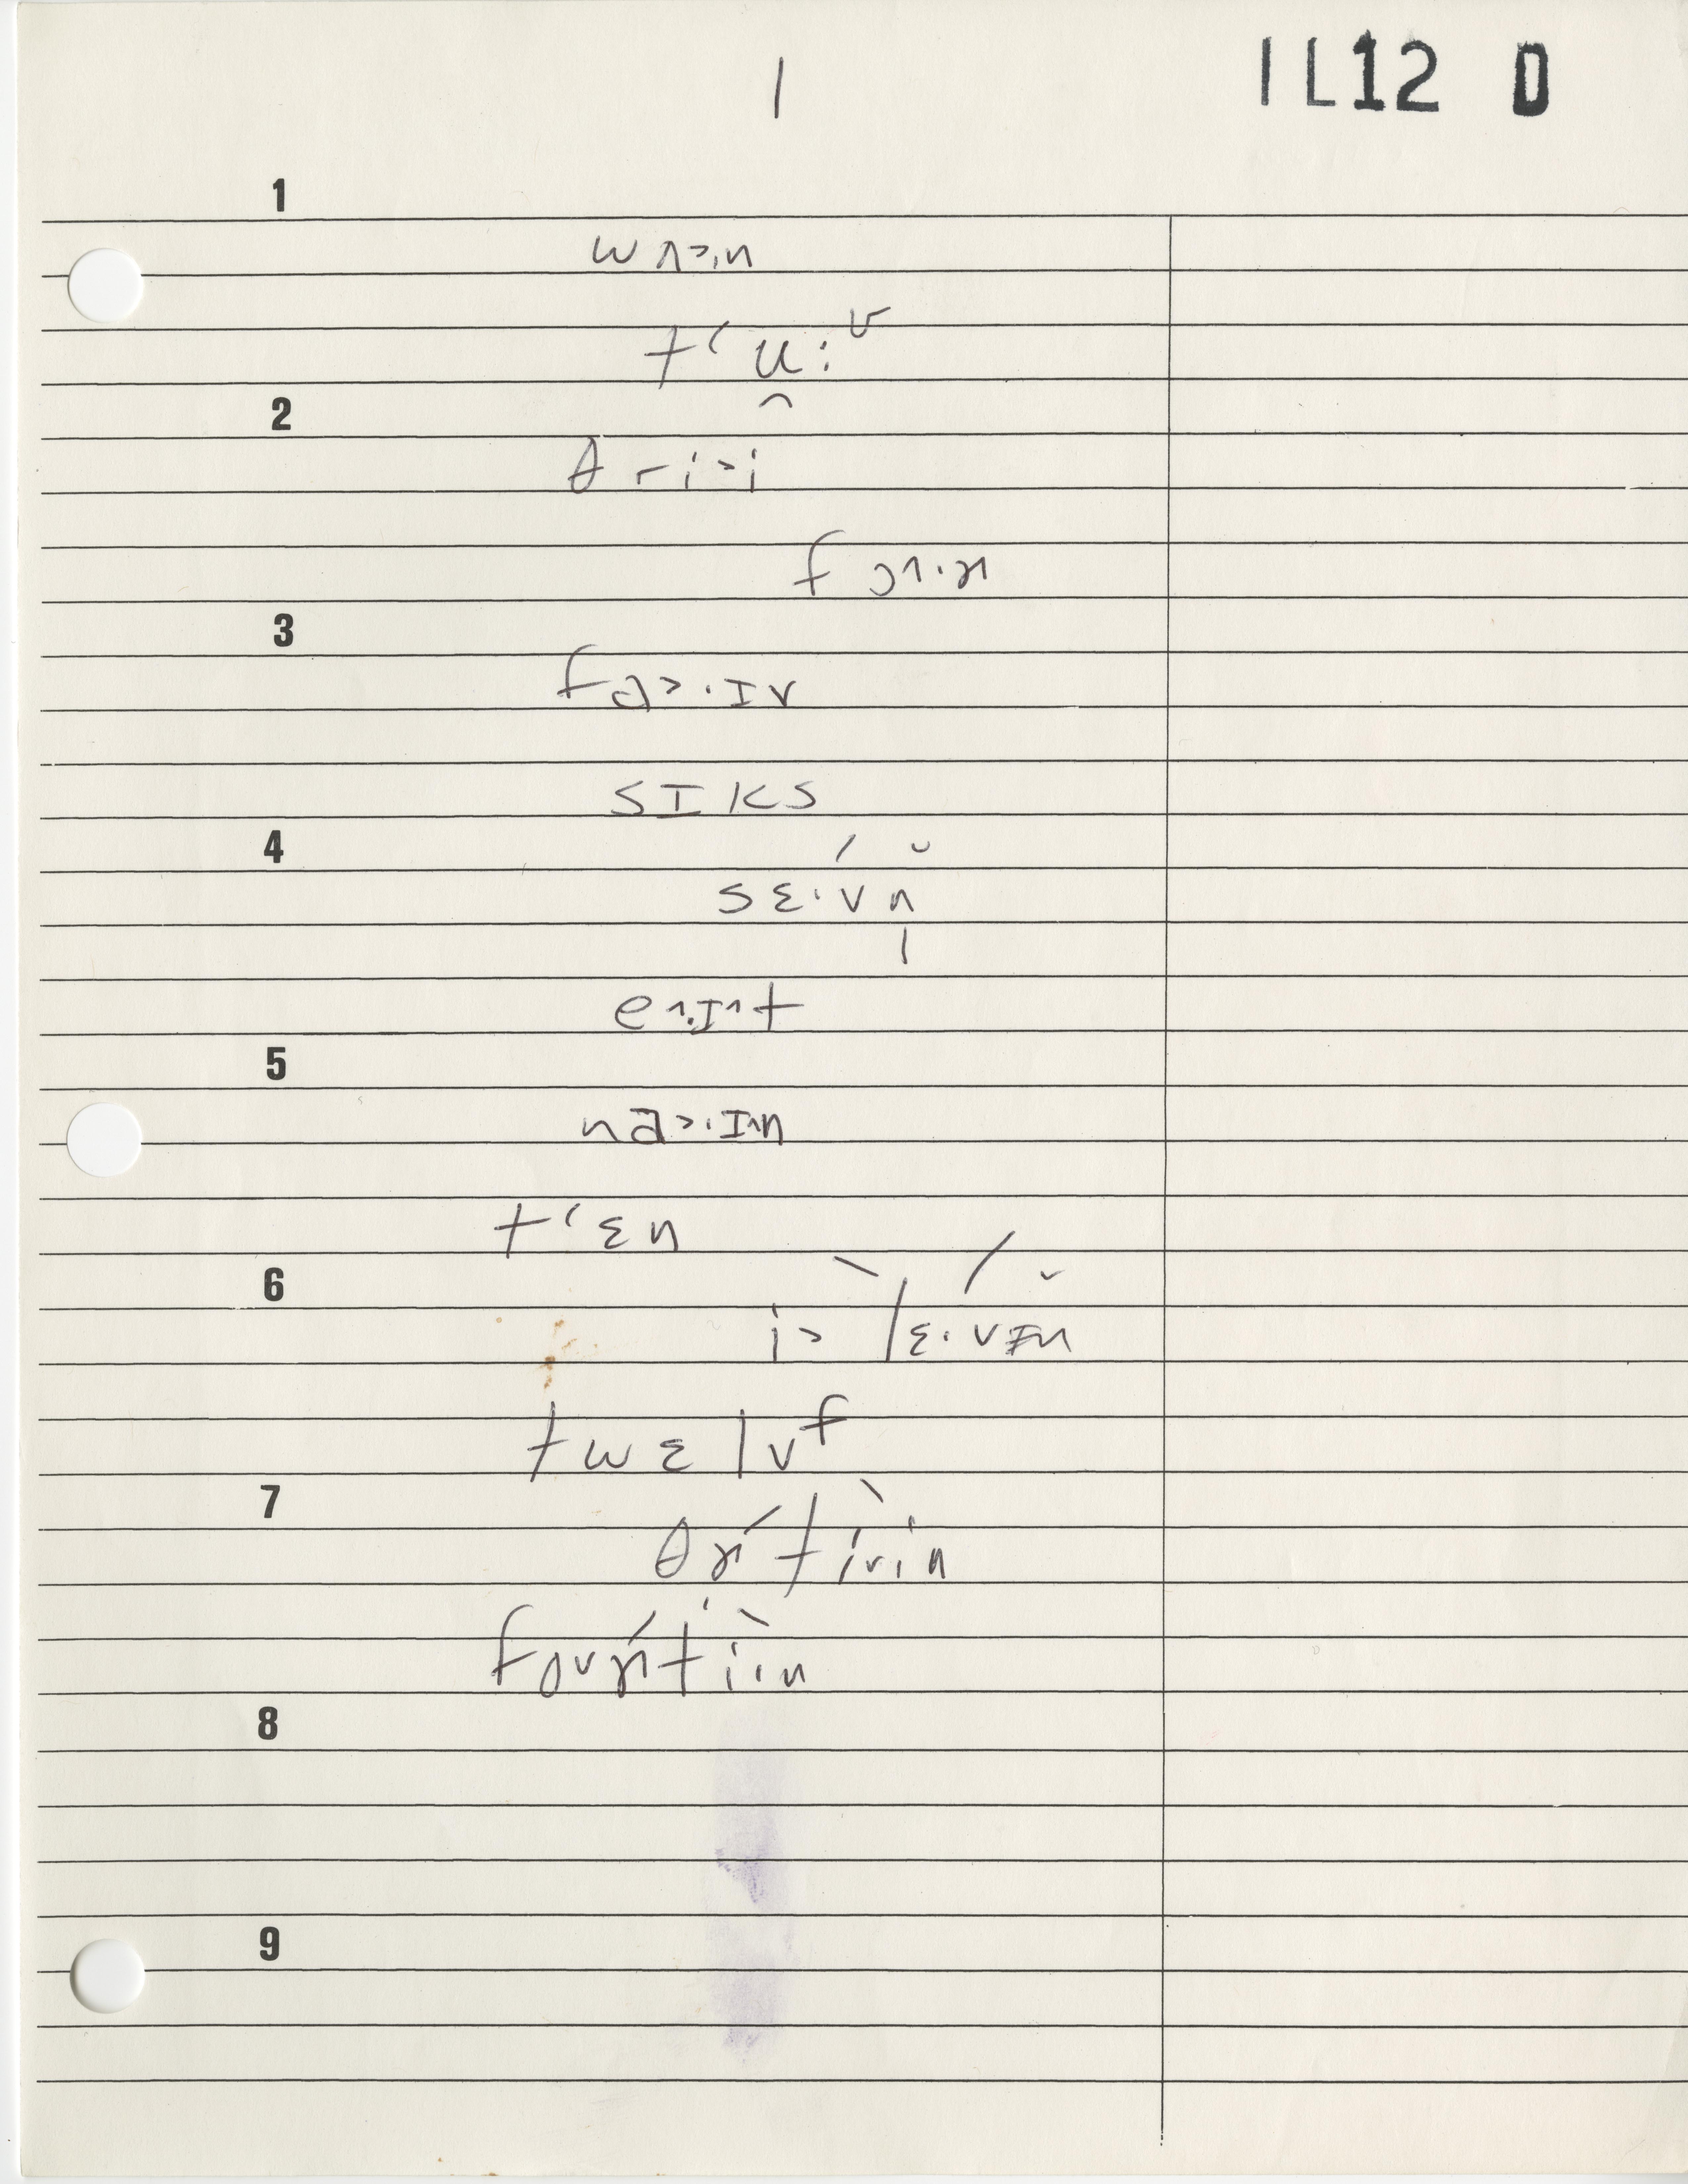 1
IL12 D
1
wʌ˃.n
tʻu̯:ᶹ
2
θri˃i
fɔ˄·ɚ
3
fa˃·ɪv
sɪks
4
sɛ́·vn̩̆
e˄·ɪ˄t
5
na˃·ɪ˄n
tʻɛn
6
ì˃lɛ́·vɪ̆n
twɛlvᶠ
7
θɚ́tì˅·in
foᶹɚ́tì·in
8
9